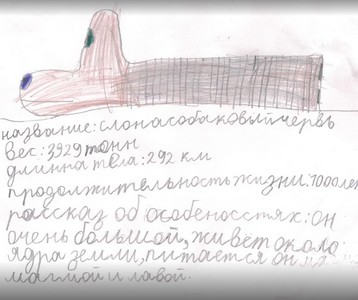 название: слонасобаковыйчервь
вес: 3929 тонн
длинна тела: 292 км
продолжительность жизни: 1000 лет
рассказ об особеностях: он
очень большой, живёт около
ядра земли, питается он
магмой и лавой.